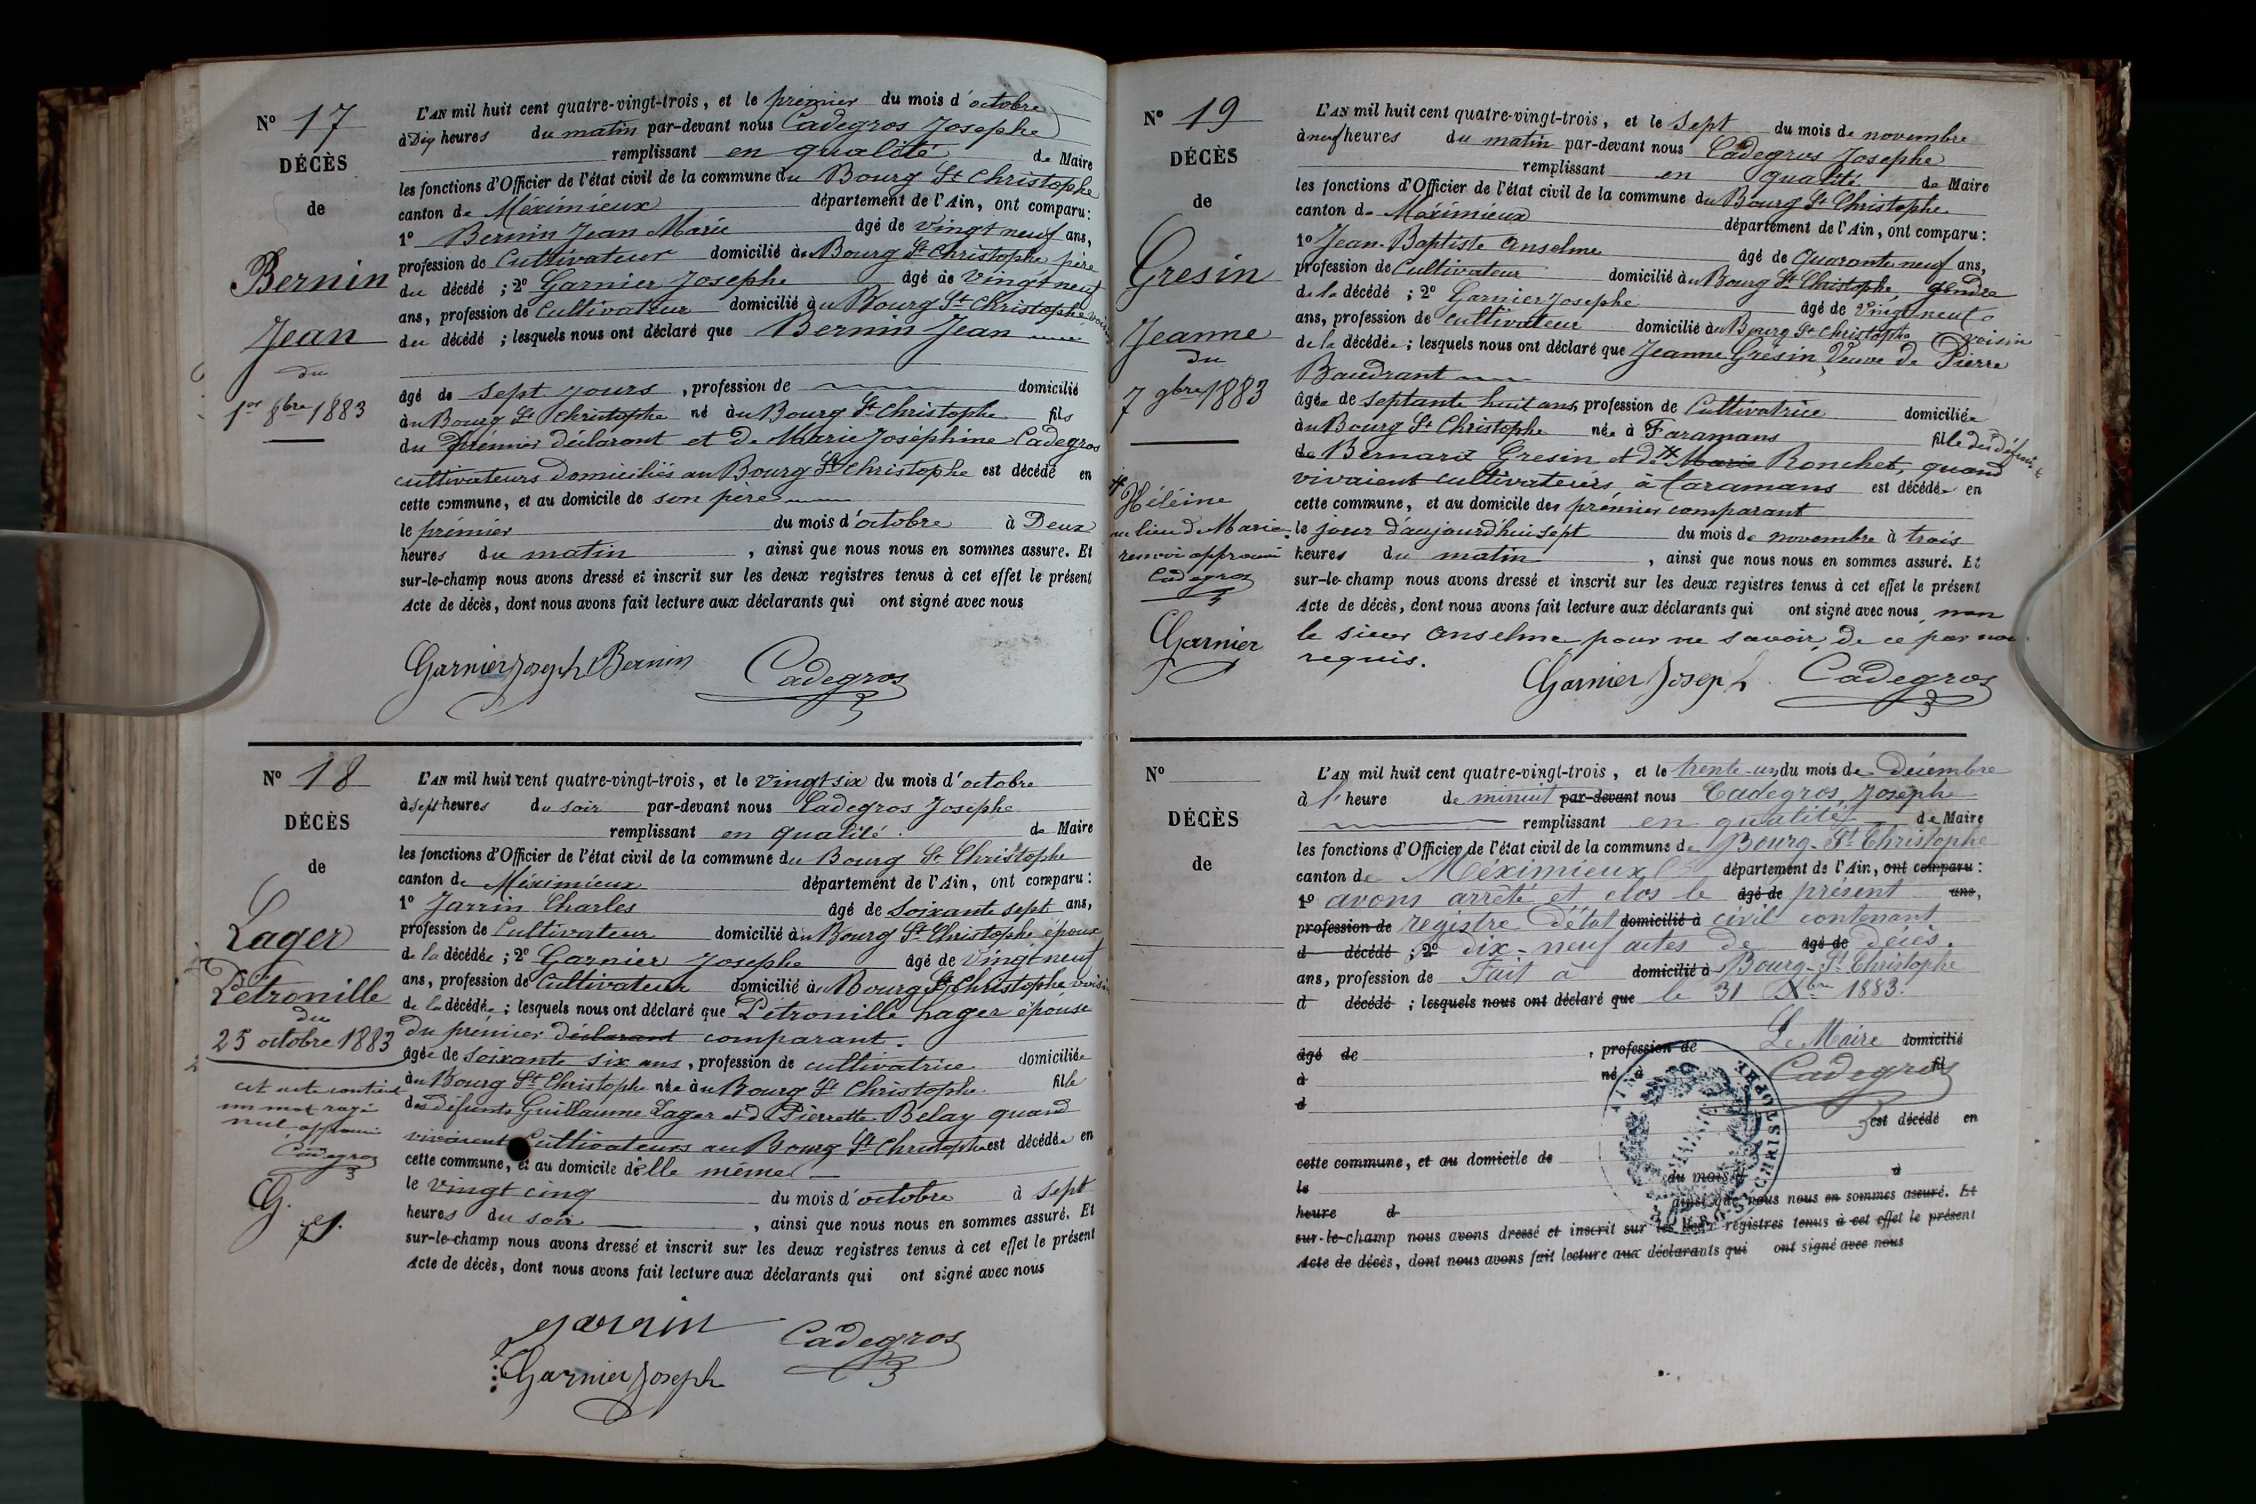 N° 17
DÉCÈS
de
Bernin
Jean
du
1er 8bre 1883
L'AN mil huit cent quatre-vingt-trois, et le prémier du mois d'octobre
à Dix heures du matin par-devant nous Cadegros Josephe
remplissant en qualité de Maire
les fonctions d'Officier de l'état civil de la commune du Bourg St Christophe
canton de Méximieux département de l'Ain, ont comparu :
1° Bernin Jean Marie âgé de vingt neuf ans,
profession de Cultivateur domicilié au Bourg St Christophe père
du décédé ; 2° Garnier Josephe âgé de vingt neuf
ans, profession de Cultivateur domicilié au Bourg St Christophe voisin
du décédé ; lesquels nous ont déclaré que Bernin Jean
âgé de sept jours, profession de domicilié
au Bourg St Christophe né au Bourg St Christophe fils
du prémier déclarant et de Marie Joséphine Cadegros
cultivateurs domiciliés au Bourg St Christophe est décédé en
cette commune, et au domicile de son père
le prémier du mois d'octobre à Deux
heures du matin, ainsi que nous nous en sommes assuré. Et
sur-le-champ nous avons dressé et inscrit sur les deux registres tenus à cet effet le présent
Acte de décès, dont nous avons fait lecture aux déclarants qui ont signé avec nous
Garnier Joseph Bernin Cadegros
N° 18
DÉCÈS
de
Lager
Pétronille
du
25 octobre 1883
cet acte contient
un mot rayé
nul approuvé
Cadegros
G.
L'AN mil huit cent quatre-vingt-trois, et le vingt six du mois d'octobre
à sept heures du soir par-devant nous Cadegros Josephe
remplissant en qualité de Maire
les fonctions d'Officier de l'état civil de la commune du Bourg St Christophe
canton de Méximieux département de l'Ain, ont comparu :
1° Jarrin Charles âgé de Soixante sept ans,
profession de Cultivateur domicilié au Bourg St Christophe époux
de la décédée ; 2° Garnier Josephe âgé de vingt neuf
ans, profession de Cultivateur domicilié au Bourg St Christophe voisin
de la décédée ; lesquels nous ont déclaré que Pétronille Lager épouse
du prémier déclarant comparant.
âgée de soixante six ans, profession de cultivatrice domiciliée
au Bourg St Christophe née au Bourg St Christophe fille
des défunts Guillaume Lager et d Pierrette Bélay quand
vivaient Cultivateurs au Bourg St Christophe est décédée en
cette commune, et au domicile d'elle même
le vingt cinq du mois d'octobre à sept
heures du soir, ainsi que nous nous en sommes assuré. Et
sur-le-champ nous avons dressé et inscrit sur les deux registres tenus à cet effet le présent
Acte de décès, dont nous avons fait lecture aux déclarants qui ont signé avec nous
Jarrin Cadegros
Garnier Joseph
N° 19
DÉCÈS
de
Gresin
Jeanne
du
7 9bre 1883
Héléine
au lieu de Marie
renvoi approuvé
Cadegros
Garnier
L'AN mil huit cent quatre-vingt-trois, et le sept du mois de novembre
à neuf heures du matin par-devant nous Cadegros Josephe
remplissant en qualité de Maire
les fonctions d'Officier de l'état civil de la commune du Bourg St Christophe
canton de Méximieux département de l'Ain, ont comparu :
1° Jean-Baptiste Anselme âgé de quarante neuf ans,
profession de Cultivateur domicilié au Bourg St Christophe, gendre
de la décédé ; 2° Garnier Josephe âgé de vingt neuf
ans, profession de cultivateur domicilié au Bourg St Christophe voisin
de la décédée ; lesquels nous ont déclaré que Jeanne Grésin, veuve de Pierre
Baudrant
âgée de septante huit ans, profession de Cultivatrice domiciliée
au Bourg St Christophe née à Faramans fille des défunts
de Bernard Gresin et de Marie Ronchet, quand
vivaient cultivateurs à Faramans est décédée en
cette commune, et au domicile des prémier comparant
le jour d'aujourd'hui sept du mois de novembre à trois
heures du matin, ainsi que nous nous en sommes assuré. Et
sur-le-champ nous avons dressé et inscrit sur les deux registres tenus à cet effet le présent
Acte de décès, dont nous avons fait lecture aux déclarants qui ont signé avec nous, non
le sieur Anselme pour ne savoir, de ce par nous
requis.
Garnier Joseph Cadegros
N°
DÉCÈS
de
L'AN mil huit cent quatre-vingt-trois, et le trente-un du mois de Décembre
à l' heure de minuit par-devant nous Cadegros Joseph
remplissant en qualité de Maire
les fonctions d'Officier de l'état civil de la commune de Bourg-St Christophe
canton de Méximieux département de l'Ain, ont comparu :
1° avons arrêté et clos le âgé de présent ans,
profession de registre d'état domicilié à civil contenant
d décédé ; 2° dix-neuf actes de âgé de décès.
ans, profession de Fait à domicilié à Bourg-St Christophe
d décédé ; lesquels nous ont déclaré que le 31 Xbre 1883.
Le Maire domicilié
âgé de, profession de
d né à Cadegros fil
d
est décédé en
cette commune, et au domicile de
le du mois d à
heure d ainsi que nous nous en sommes assuré. Et
sur-le-champ nous avons dressé et inscrit sur les deux registres tenus à cet effet le présent
Acte de décès, dont nous avons fait lecture aux déclarants qui ont signé avec nous